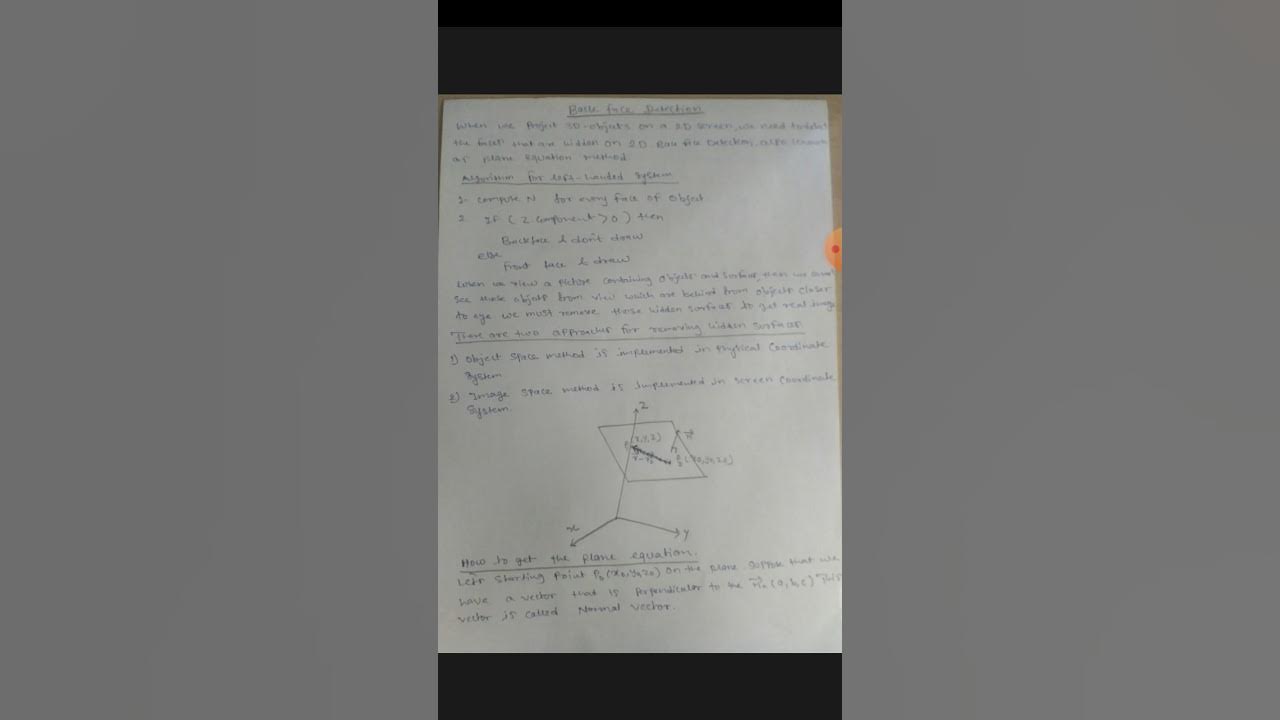 Back face Detection
When we Project 3D-objects on a 2D screen, we need to detect
the faces that are hidden on 2D. Back face Detection, also known
as plane Equation method.
Algorithm for left-handed system
1. compute N for every face of object
2. If (Z. component > 0) then
Backface & don't draw
else
Front face & draw
When we view a picture containing objects and surface, then we can't
see those objects from view which are behind from objects closer
to eye we must remove these hidden surfaces to get real image
There are two approaches for removing hidden surfaces
1) Object space method is implemented in physical coordinate
system
2) Image space method is implemented in screen coordinate
system.
Z
(x,y,z)
x
y
How to get the plane equation.
Let's starting point P0(x0,y0,z0) on the plane. suppose that we
have a vector that is perpendicular to the n = (a,b,c) This
vector is called Normal vector.